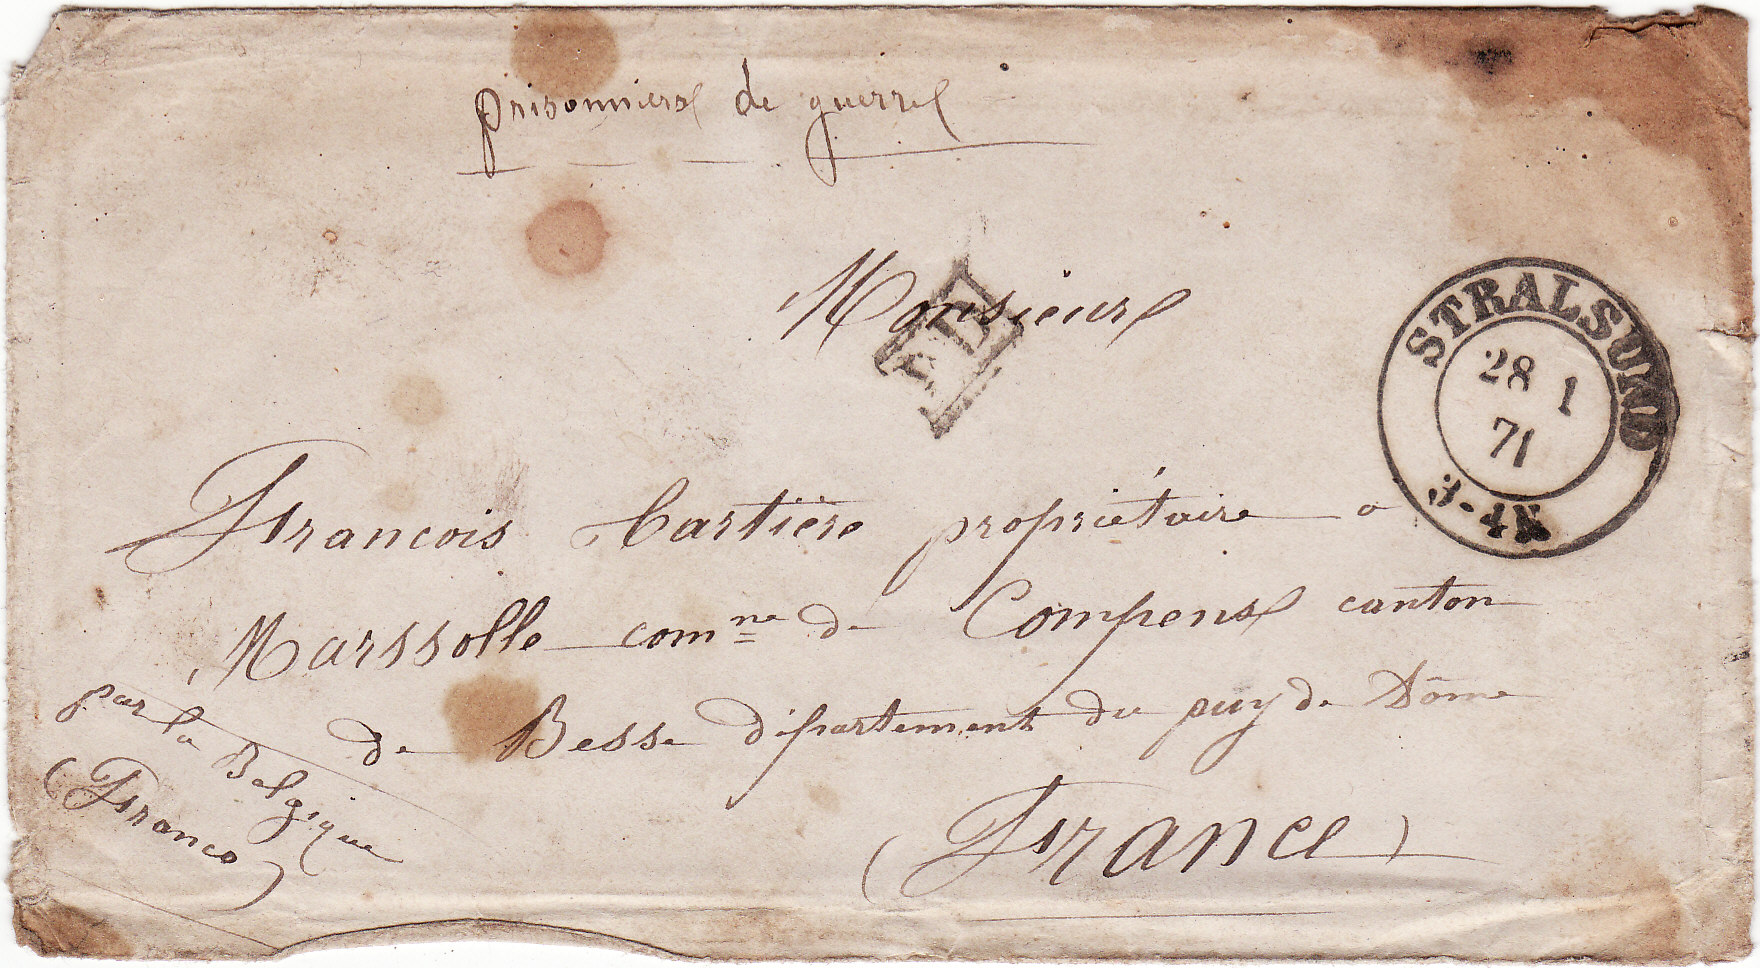 prisonniers de guerre
Monsieur
PD
STRALSUND
28 1
71
3-4N
Francois Cartière propriétaire a
Marssolle comne de Compens canton
de Besse département du puy de Dôme
par la Belgique
(Franco)
(France)